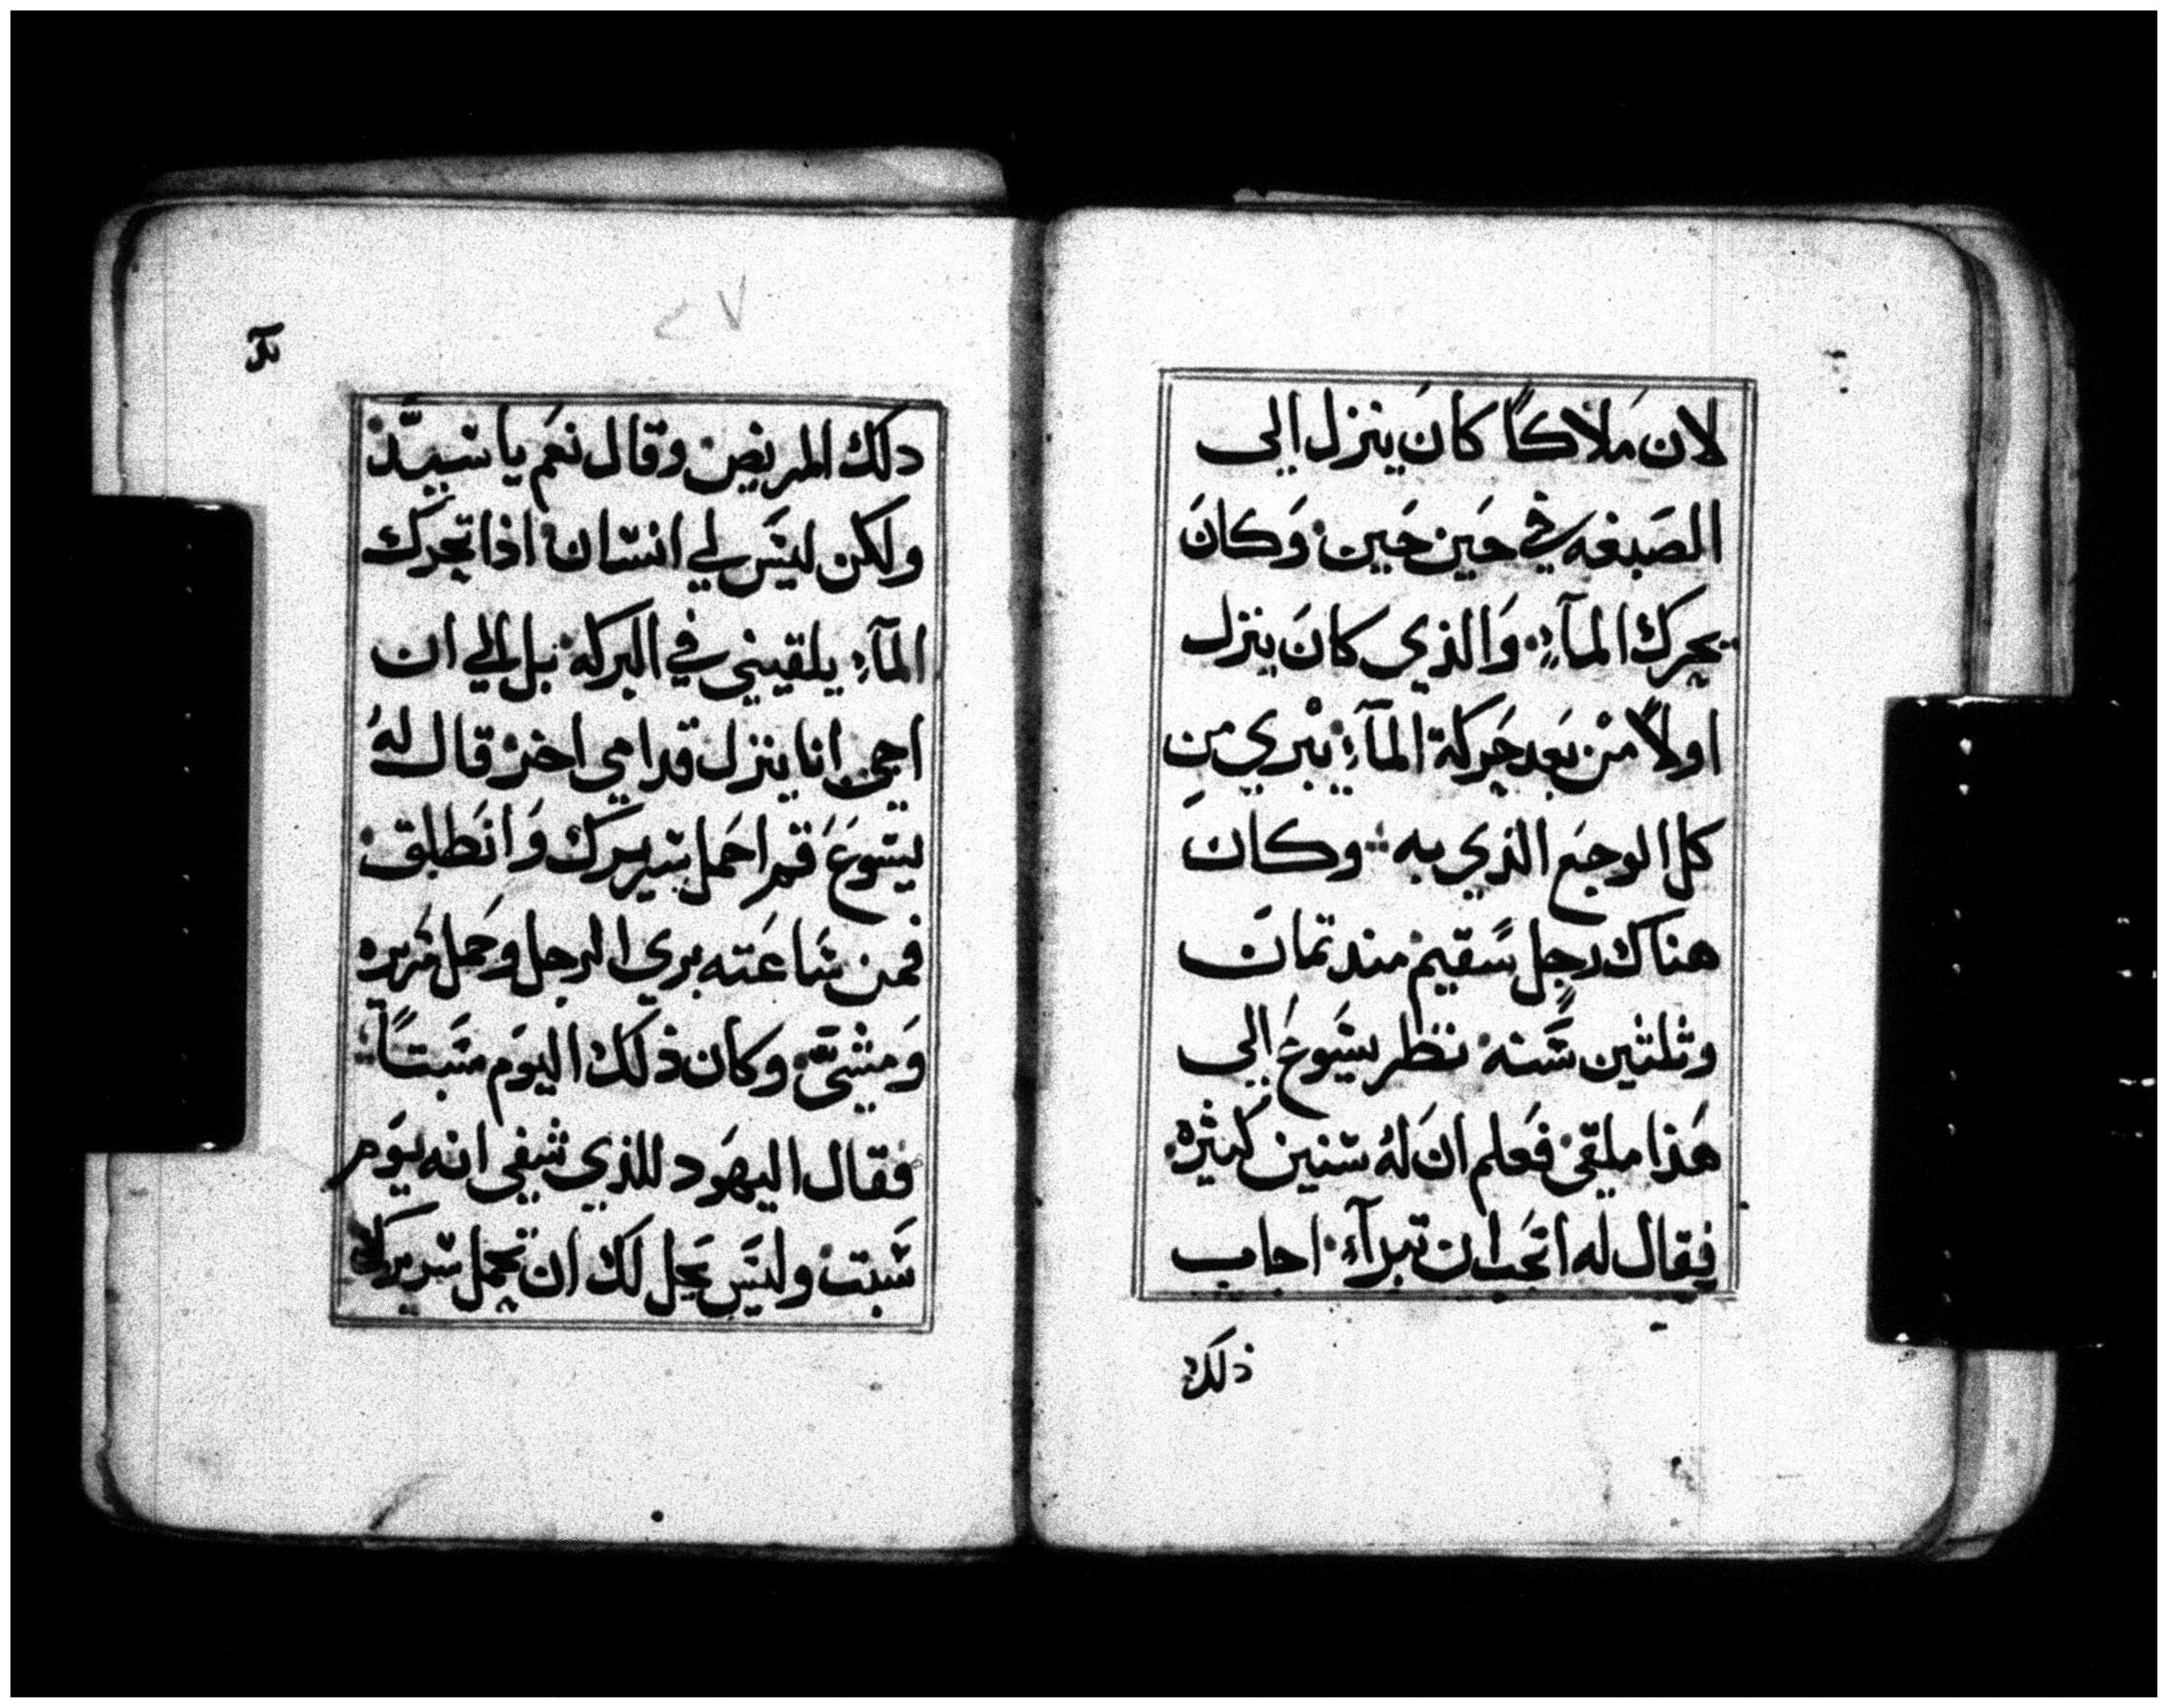 لان مَلاكًا كانَ ينزل الي
الصَبغه في حَين حَين وَكانَ
يحرك المآءِ وَالذي كانَ ينزل
اولاً منْ بَعد حَركة المآءِ يبْري من
كل الوجَع الذي به وكانَ
هناك رجل سَقيم مند تمانَ
وثلثين سَنه نظر يسَوعَ الي
هَذا ملقي فعَلم انَ لهُ سنين كثيره
فقال له اتحَب ان تبرآء اجاب
ذلك
٤٧
دلك المريض وقال نعَم يا سيّد
ولكن ليسَ لي انسان اذا تحرَك
المآءِ يلقيني في البركه بل الي ان
اجي انا ينزل قدامي اخر قال لهُ
يسَوعَ قم احَمل سَريرَك وَانطَلق
فمن سَاعَته بري الرجل وحَمل سَريره
وَمشيّ وكان ذلَك اليوَم سَبتاً
فقال اليهَود للذي شفي انه يوَم
سَبت وليسَ يحَل لك ان تحمل سريرَك